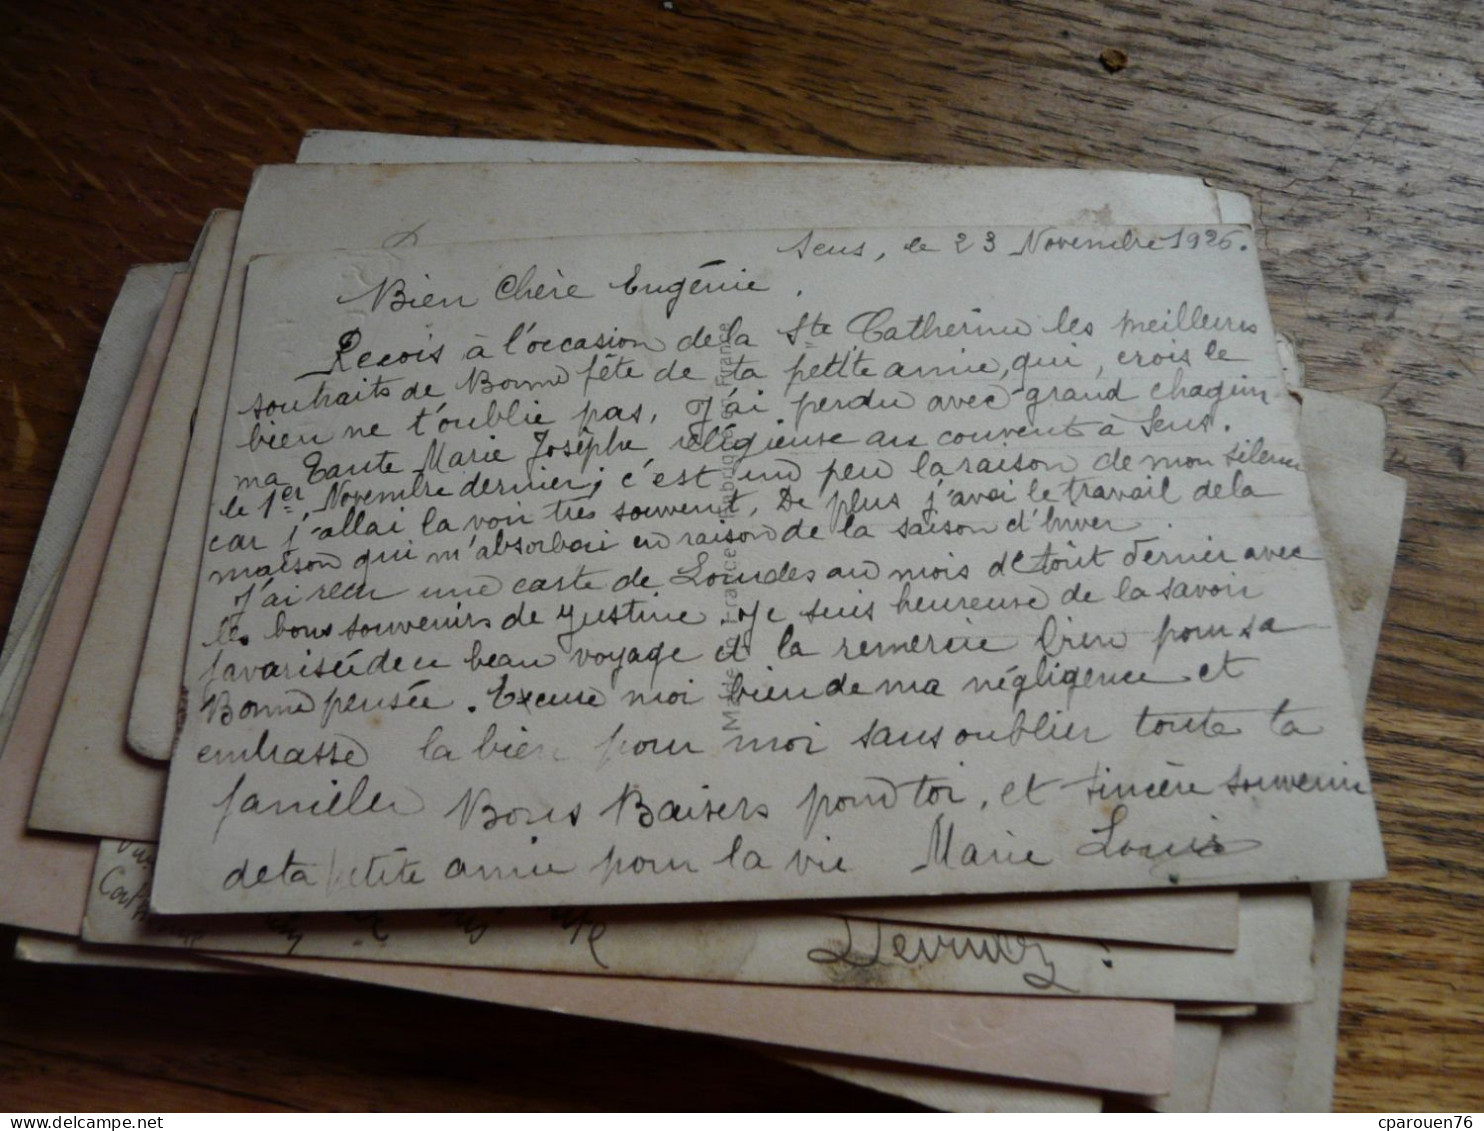 Sens, le 23 Novembre 1926.
Bien Chère Eugénie.
Reçois à l'occasion de la Ste Catherine les meilleurs
souhaits de Bonne fête de ta petite amie, qui, crois le
bien ne t'oublie pas. J'ai perdu avec grand chagrin
ma Tante Marie Josèphe réligieuse au couvent à Sens.
le 1er Novembre dernier; c'est un peu la raison de mon silence
car j'allai la voir très souvent. De plus j'avai le travail de la
maison qui m'absorbai en raison de la saison d'hiver.
J'ai reçu une carte de Lourdes au mois d'Aout dernier avec
les bons souvenirs de Justine. Je suis heureuse de la savoir
favorisée de ce beau voyage et la remercie bien pour sa
Bonne pensée. Excuse moi bien de ma négligence et
embrasse la bien pour moi sans oublier toute ta
famille. Bons Baisers pour toi, et sincère souvenir
de ta petite amie pour la vie Marie Louise
Made in France
France
cparouen76